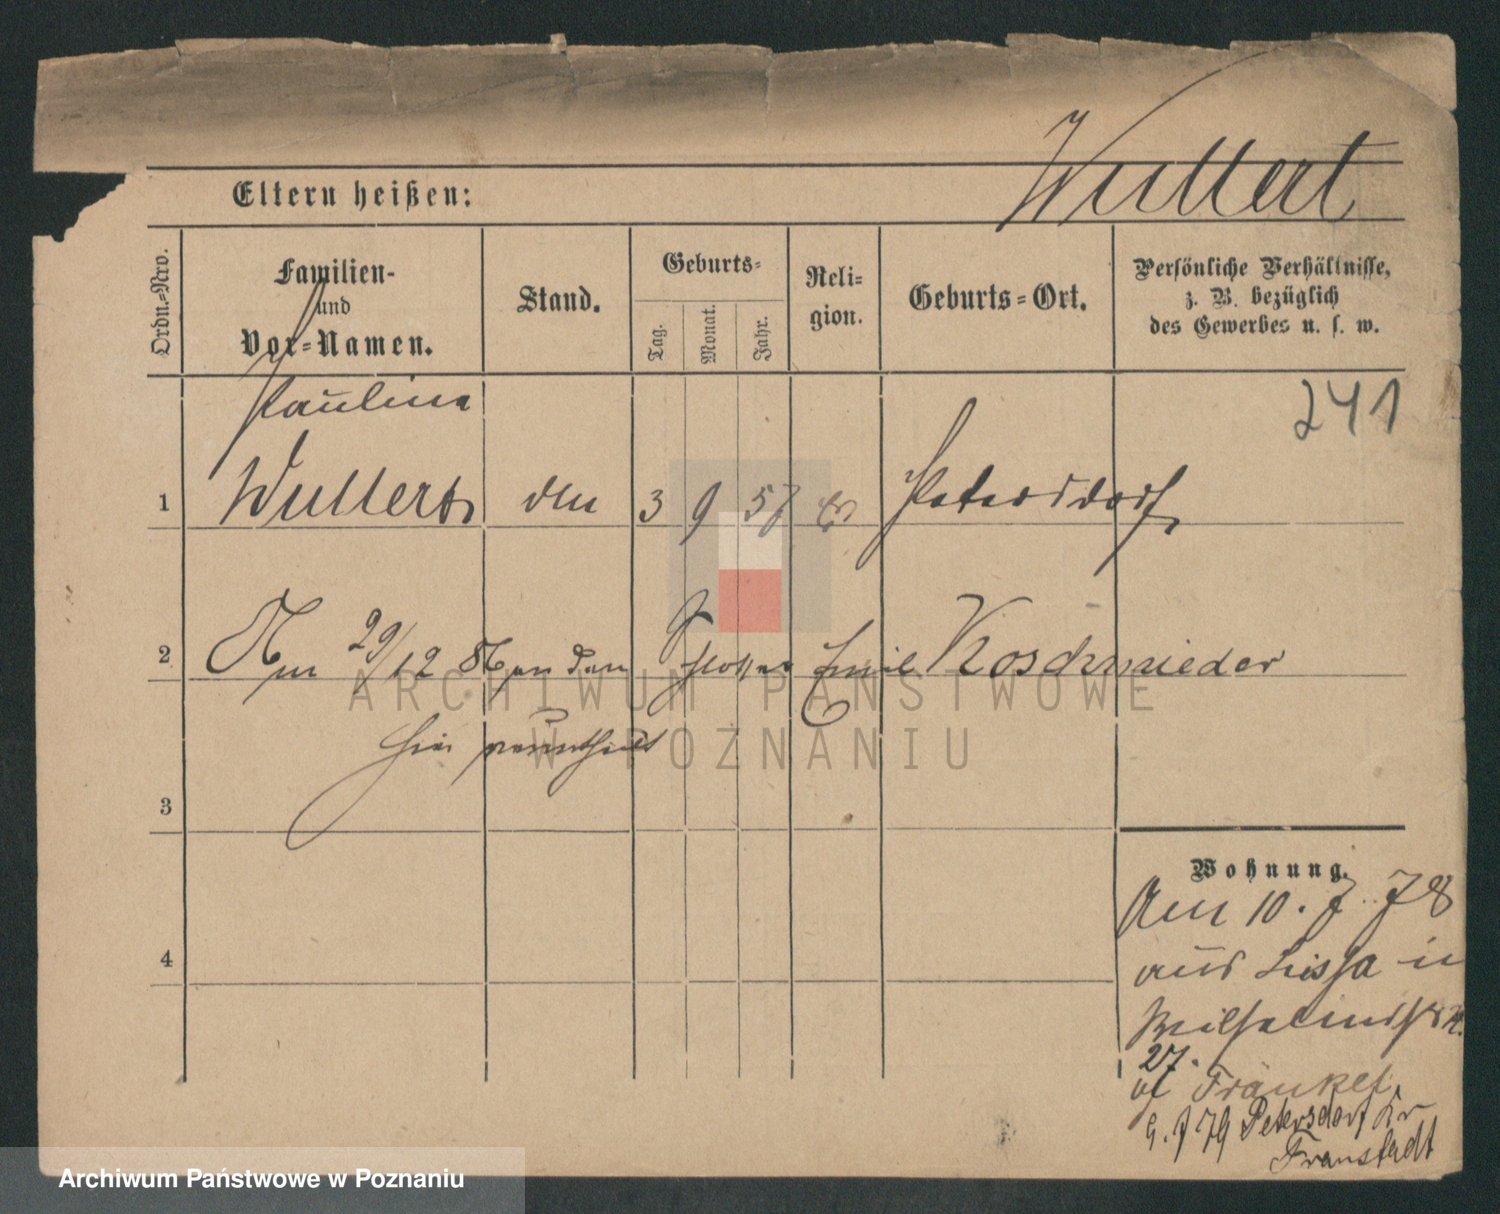 Wuttert
Eltern heißen:
Ordn.-Nro.
Familien-
und
Vor-Namen.
Stand.
Geburts-
Tag.
Monat.
Jahr.
Reli-
gion.
Geburts-Ort.
Persönliche Verhältnisse,
z. B. bezüglich
des Gewerbes u. s. w.
241
Pauline
1 Wuttert 3 9 57 Petersdorf
2 Am 29/12 86 an den Emil Koschmieder
ARCHIWUM PAŃSTWOWE
hier
W POZNANIU
3
Wohnung.
Am 10. 7. 78
4
aus Lissa in
27.
Fränkel
9. 7 79 Petersdorf Kr
Fraustadt
Archiwum Państwowe w Poznaniu